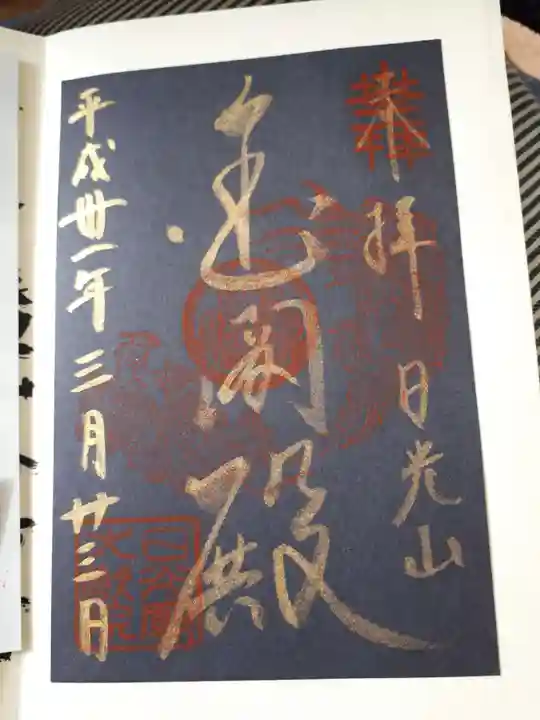 奉拝 日光山
金閣殿
平成卅一年三月廿三日